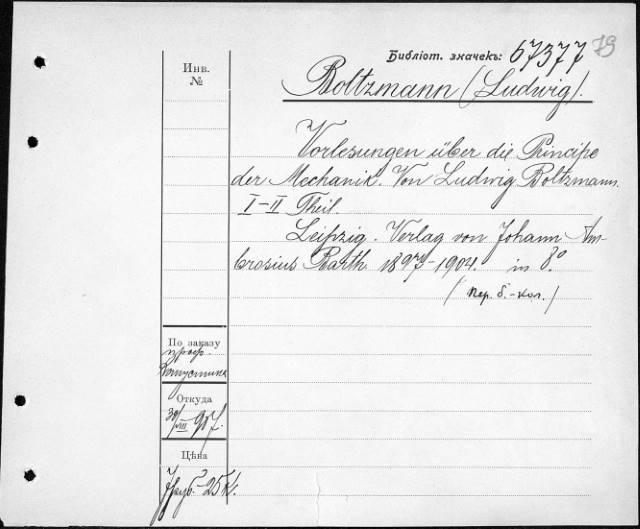 Библіот. значекъ: 67377 79
Инв. №
Boltzmann (Ludwig).
Vorlesungen über die Principe
der Mechanik. Von Ludwig Boltzmann.
I–II Theil.
Leipzig. Verlag von Johann Am-
brosius Barth. 1897–1904. in 8.º
(пер. б.-кол.)
По заказу
проф.
Откуда
30/VII 907.
Цѣна
7 руб. 25 к.